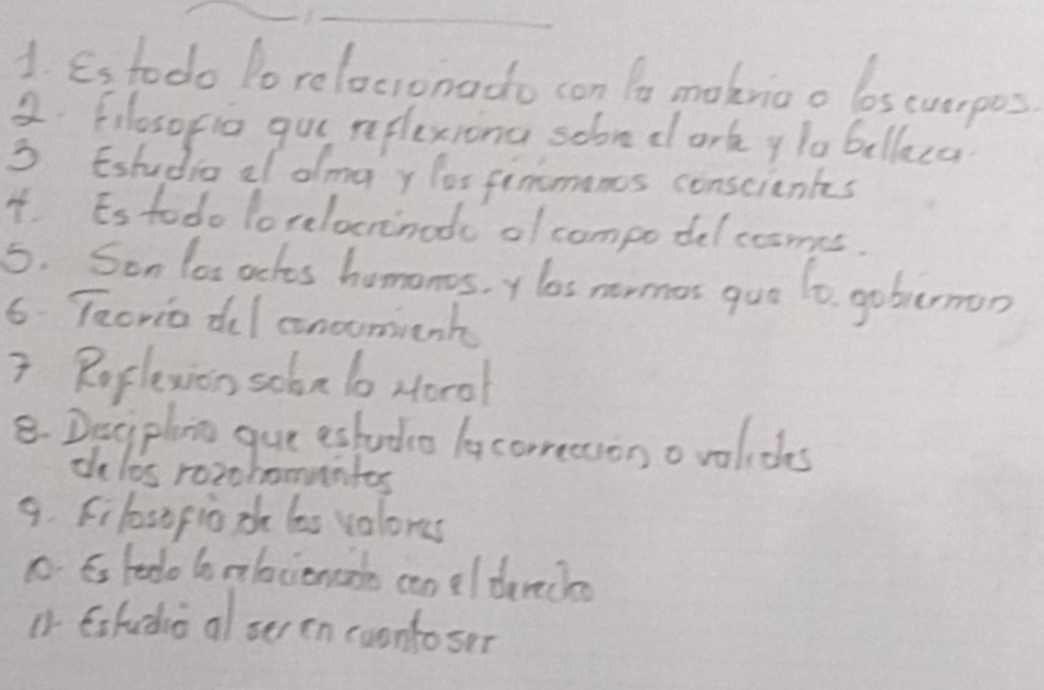 1. Es todo lo relacionado con la materia o los cuerpos.
2. Filosofia que reflexiona sobre el arte y la belleza.
3 Estudia el alma y los fenómenos conscientes
4. Es todo lo relacionado al campo del cosmos.
5. Son los actos humanos. y las normas que lo gobiernan
6. Teoria del conocimiento
7 Reflexion sobre lo Moral
8. Disciplina que estudia la corrección o valides
de los razonamientos
9. Filosofia de los valores
10. Es todo lo relacionado con el derecho
11. Estudia al ser en cuanto ser